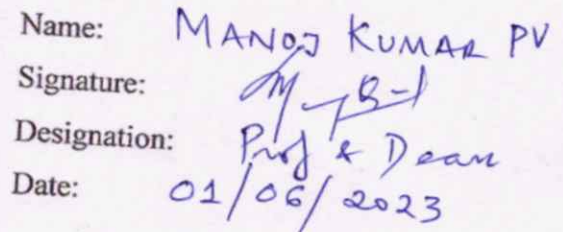 Name: MANOJ KUMAR PV
Signature:
Designation: Prof & Dean
Date: 01/06/2023